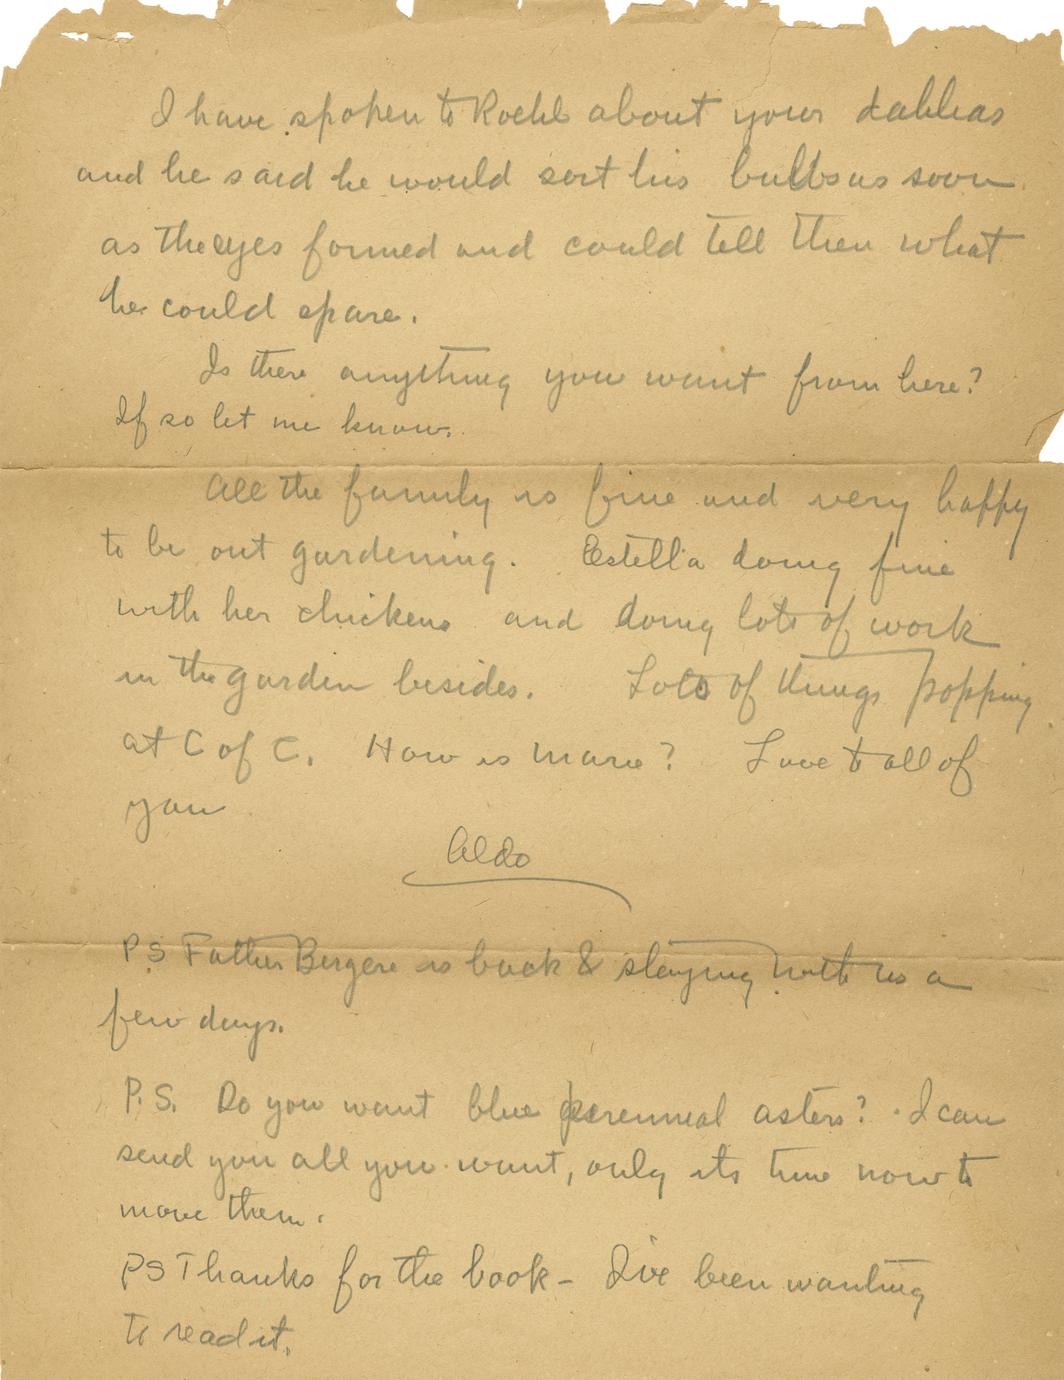 I have spoken to Roehl about your dahlias
and he said he would sort his bulbs as soon
as the eyes formed and could tell then what
he could spare.
Is there anything you want from here?
If so let me know.
All the family is fine and very happy
to be out gardening. Estella doing fine
with her chickens and doing lots of work
in the garden besides. Lots of things popping
at C of C. How is Marie? Love to all of
you
Aldo
PS Father Bergere is back & staying with us a
few days.
P.S. Do you want blue perennial asters? I can
send you all you want, only its time now to
move them.
PS Thanks for the book - I've been wanting
to read it.